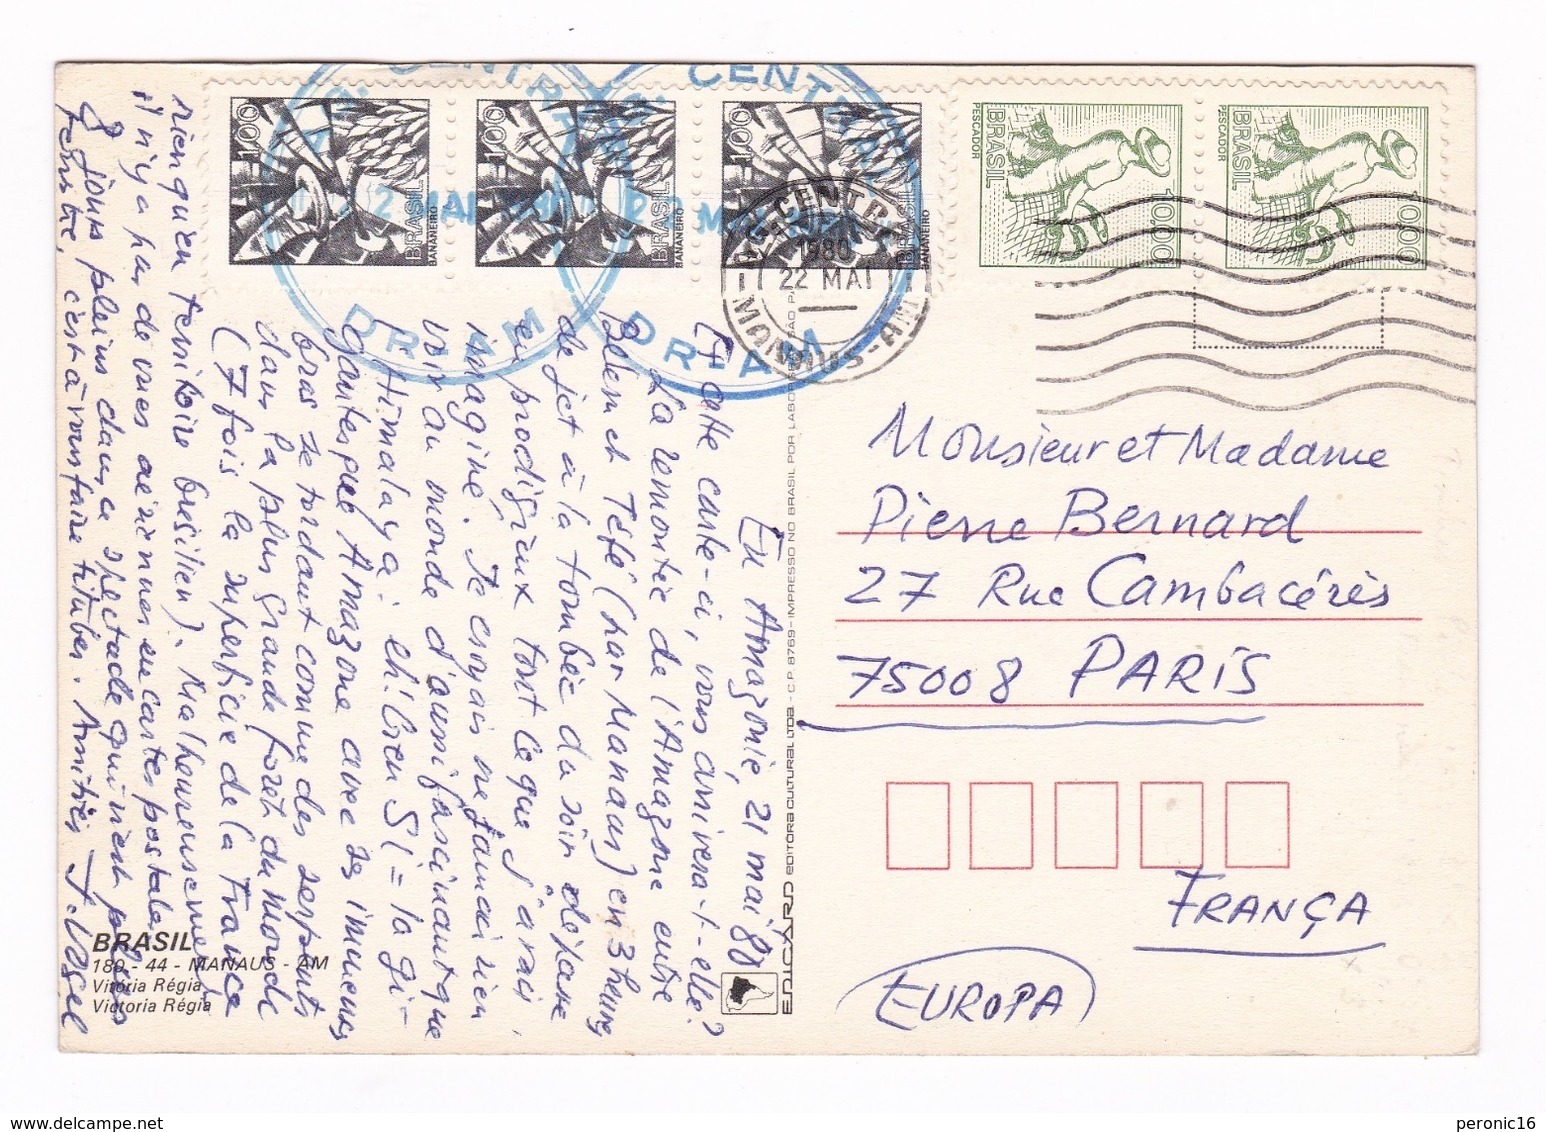 En Amazonie, 21 mai 80
Et cette carte-ci, vous arrivera-t-elle?
La remontée de l'Amazone entre
Belém et Tefé (par Manaus) en 3 heures
de jet à la tombée du soir dépasse
en prodigieux tout ce que j'avais
imaginé. Je croyais ne jamais rien
voir au monde d'aussi fascinant que
l'Himalaya: eh! bien si = la gi-
gantesque Amazone avec ses immenses
bras se tordant comme des serpents
dans la plus grande forêt du monde
(7 fois la superficie de la France
rien qu'en territoire brésilien). Malheureusement
il n'y a pas de vues aériennes en cartes postales
8 jours pleins dans ce spectacle qui n'est plus
terrestre, c'est à vous faire tituber. Amitiés J.
BRASIL
180 - 44 - MANAUS - AM
Vitória Régia
Victoria Régia
EDICARD EDITORA CULTURAL LTDA - C.P. 8769 - IMPRESSO NO BRASIL POR LABOR SÃO PA
1,00 BRASIL BANANEIRO
1,00 BRASIL BANANEIRO
1,00 BRASIL BANANEIRO
BRASIL PESCADOR 10,00
BRASIL PESCADOR 10,00
CENTRAL
DR-AM
CENTRAL
DR-AM
AG. CENTRAL
1980
22 MAI
MANAUS-AM
Monsieur et Madame
Pierre Bernard
27 Rue Cambacérès
75008 PARIS
FRANÇA
(EUROPA)
www.delcampe.net
peronic16